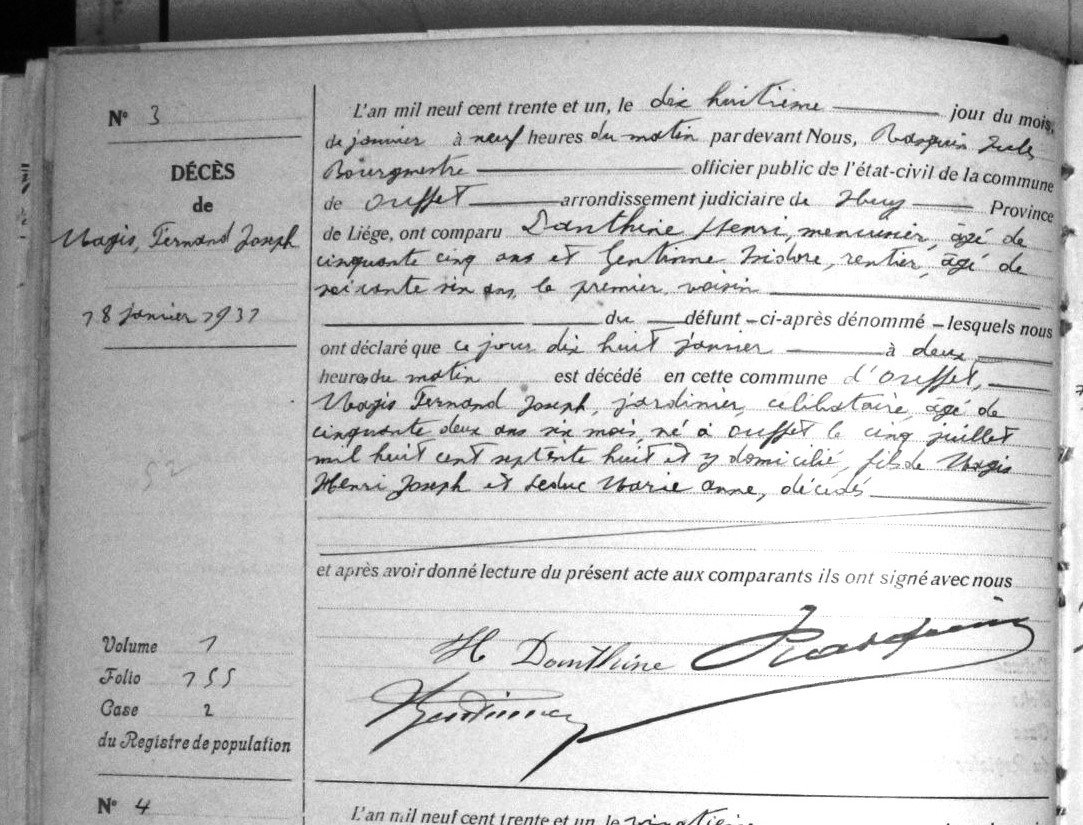 N° 3
DÉCÈS
de
Magis, Fernand Joseph
18 janvier 1931
L'an mil neuf cent trente et un, le dix huitième jour du mois,
de janvier à neuf heures du matin par devant Nous, Rasquin Jules
Bourgmestre officier public de l'état-civil de la commune
de Ouffet arrondissement judiciaire de Huy Province
de Liége, ont comparu Danthine Henri, menuisier, âgé de
cinquante cinq ans et Gentinne Isidore, rentier, âgé de
soixante six ans, le premier voisin
du défunt ci-après dénommé lesquels nous
ont déclaré que ce jour dix huit janvier à deux
heures du matin est décédé en cette commune d'Ouffet,
Magis Fernand Joseph, jardinier, célibataire, âgé de
cinquante deux ans six mois, né à Ouffet le cinq juillet
mil huit cent septante huit et y domicilié, fils de Magis
Henri Joseph et Leduc Marie Anne, décédés
et après avoir donné lecture du présent acte aux comparants ils ont signé avec nous
H Danthine Rasquin
Gentinne
52
Volume 1
Folio 155
Case 2
du Registre de population
N° 4
L'an mil neuf cent trente et un, le vingtième